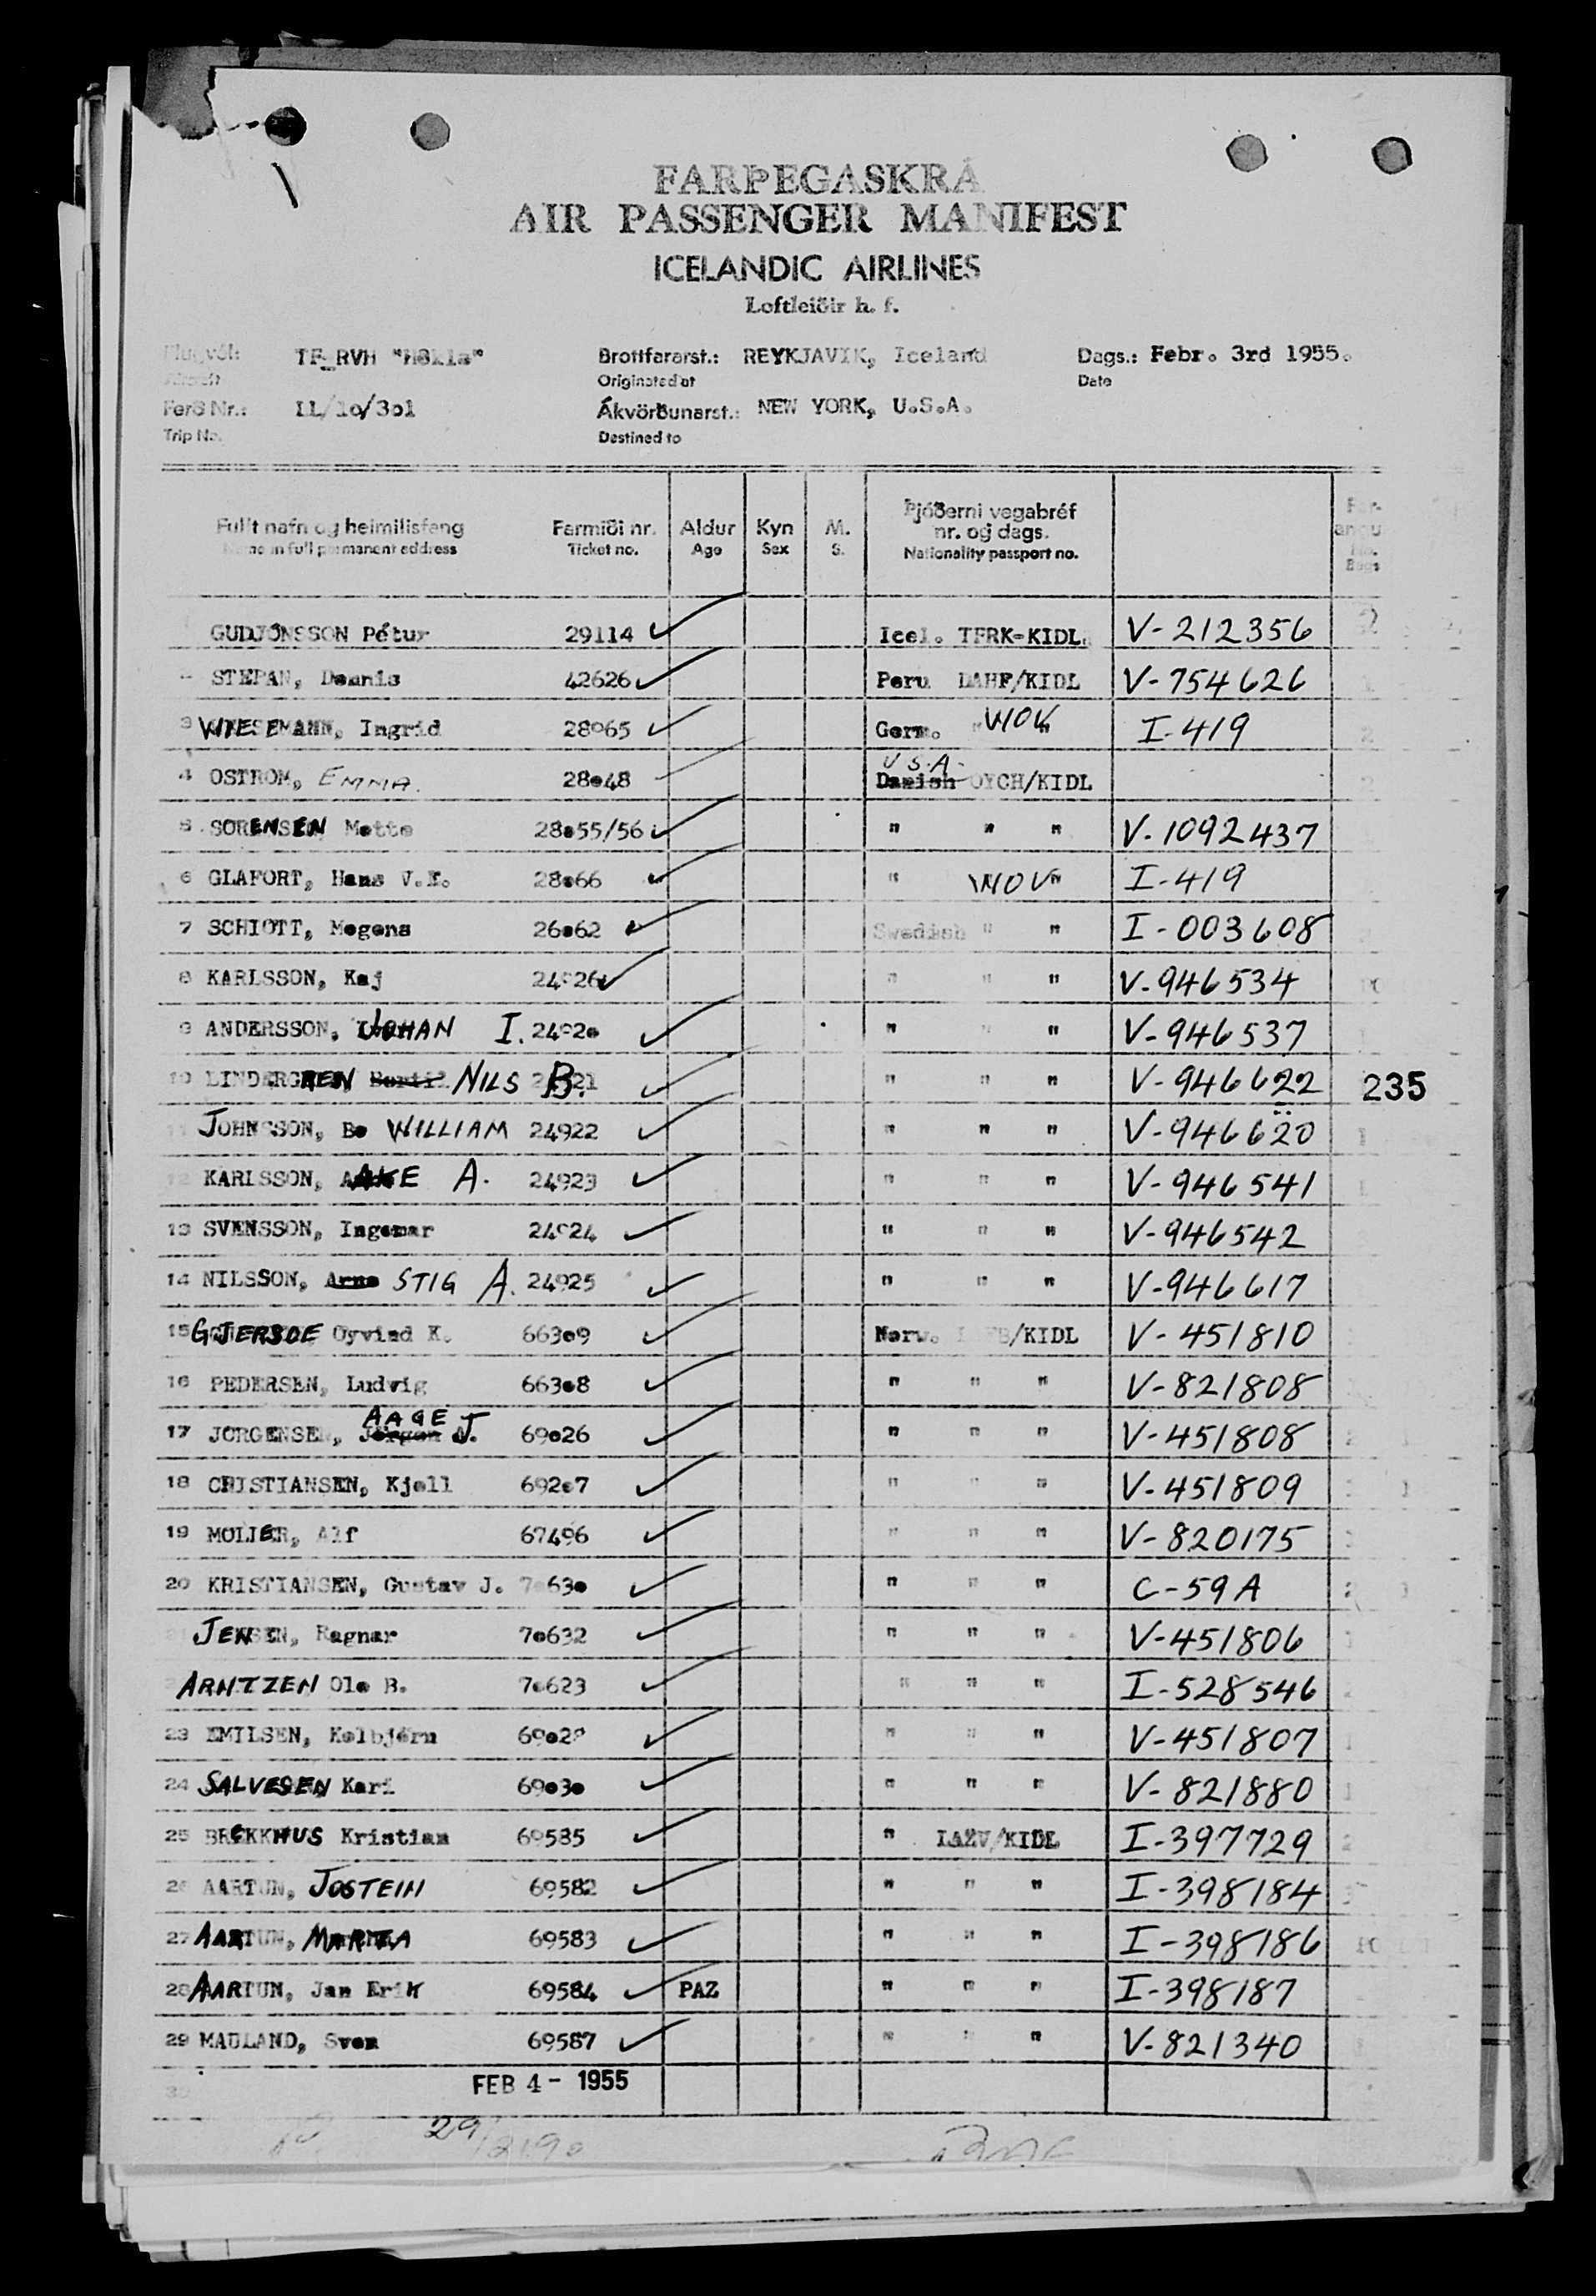 FARÞEGASKRÁ
AIR PASSENGER MANIFEST
ICELANDIC AIRLINES
Loftleiðir h. f.
Flugvél: TF_RVH "Hekla" Brottfararst.: REYKJAVIK, Iceland Dags.: Febr. 3rd 1955.
Aircraft Originated at Date
Ferð Nr.: LL/1o/3o1 Ákvörðunarst.: NEW YORK, U.S.A.
Trip No. Destined to
Fullt nafn og heimilisfang Farmiði nr. Aldur Kyn M. Þjóðerni vegabréf nr. og dags. Far-angur
Name in full permanent address Ticket no. Age Sex S. Nationality passport no. No. Bags
GUDJÓNSSON Pétur 29114 ✓ Icel. TFRK-KIDL V-212356 2
STEPAN, Dennis 42626 ✓ Peru LAHF/KIDL V-754626
3 WIESEMANN, Ingrid 28o65 ✓ Germ. " WOV " I-419
4 OSTROM, EMMA. 28o48 U.S.A. Danish OYCH/KIDL
5 SORENSEN Mette 28o55/56 ✓ " " " V-1092437
6 GLAFORT, Hans V.K. 28o66 ✓ " WOV " I-419
7 SCHIOTT, Mogens 26o62 ✓ Swedish " " I-003608
8 KARLSSON, Kaj 24926 ✓ " " " V-946534
9 ANDERSSON, JOHAN I. 2492o ✓ " " " V-946537
10 LINDERGREN Bertil NILS B. 21 ✓ " " " V-946622 235
JOHNSSON, Bo WILLIAM 24922 ✓ " " " V-946620
12 KARLSSON, AKE A. 24923 ✓ " " " V-946541
13 SVENSSON, Ingemar 24924 ✓ " " " V-946542
14 NILSSON, Arne STIG A. 24925 ✓ " " " V-946617
15 GJERSOE Oyvind K. 663o9 ✓ Norw. /KIDL V-451810
16 PEDERSEN, Ludvig 663o8 ✓ " " " V-821808
17 JORGENSEN, Jörgen AAGE J. 69o26 ✓ " " " V-451808
18 CHISTIANSEN, Kjell 692o7 ✓ " " " V-451809
19 MOLLER, Alf 67496 ✓ " " " V-820175
20 KRISTIANSEN, Gustav J. 7o63o ✓ " " " C-59A
JENSEN, Ragnar 7o632 ✓ " " " V-451806
ARNTZEN Ole B. 7o623 ✓ " " " I-528546
23 EMILSEN, Kolbjörn 69o28 ✓ " " " V-451807
24 SALVESEN Kari 69o3o ✓ " " " V-821880
25 BREKKHUS Kristian 69585 ✓ " LAZV/KIDL I-397729
26 AARTUN, JOSTEIN 69582 ✓ " " " I-398184
27 AARTUN, MARTA 69583 ✓ " " " I-398186
28 AARTUN, Jan Erik 69584 ✓ PAZ " " " I-398187
29 MAULAND, Sven 69587 ✓ " " " V-821340
30 FEB 4 - 1955
29